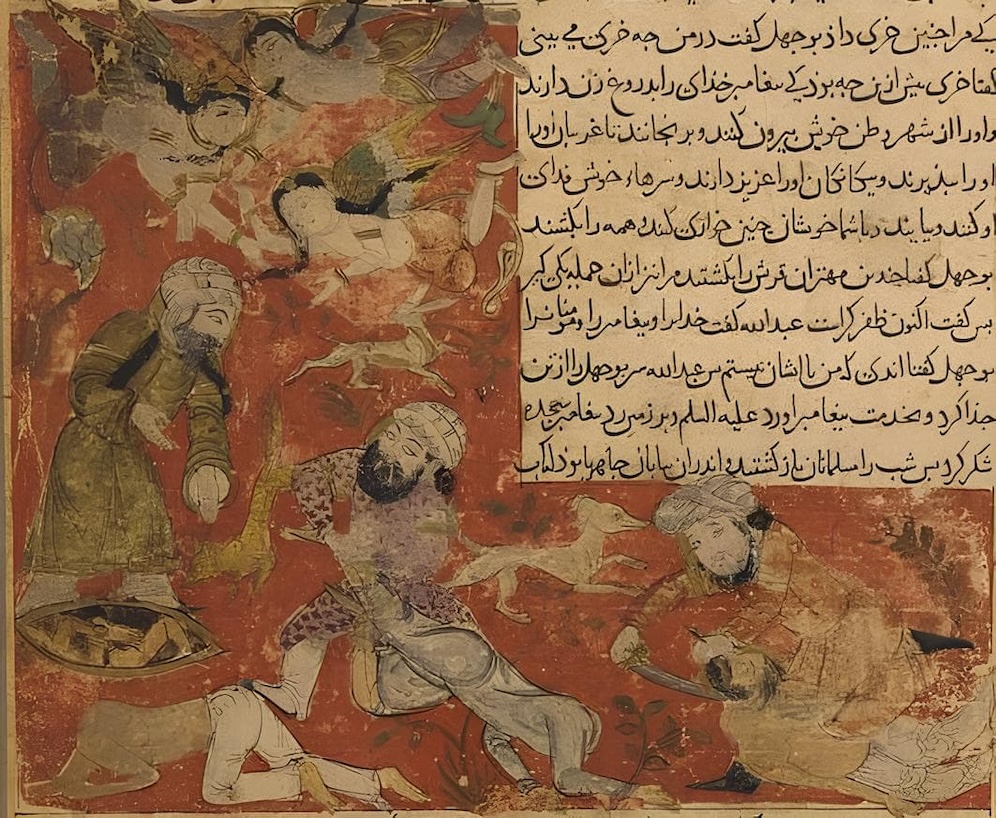 کی مرا چنین خری داد بوجهل کفت در من جه خری می بینی
کفتا خری بیش ازین جه بود کی بیغامبر خدای را بدروغ زن دارند
و اورا از شهر و وطن خویش بیرون کنند و برنجانند تا غریبان اورا
اورا ببذیرند و بیکانکان اورا عزیز دارند و سرهاء خویش فدای
او کنند و بیایند و با شما خویشان چنین خواری کنند و همه را بکشند
بوجهل کفتا چندین مهتران قریش را بکشتند مرا نیز از آن جمله یکی کیر
بس کفت اکنون ظفر کراست عبدالله کفت خدایرا و بیغامبر را و مومنانرا
بوجهل کفتا اندی که من با ایشان نیستم بس عبدالله سر بوجهل را از تن
جذا کرد و بخدمت بیغامبر اورد علیه السلم و بر زمین زد بیغامبر سجده
شکر کرد بس شب را مسلمانان بازکشتند و اندران بیابان جاهها بود